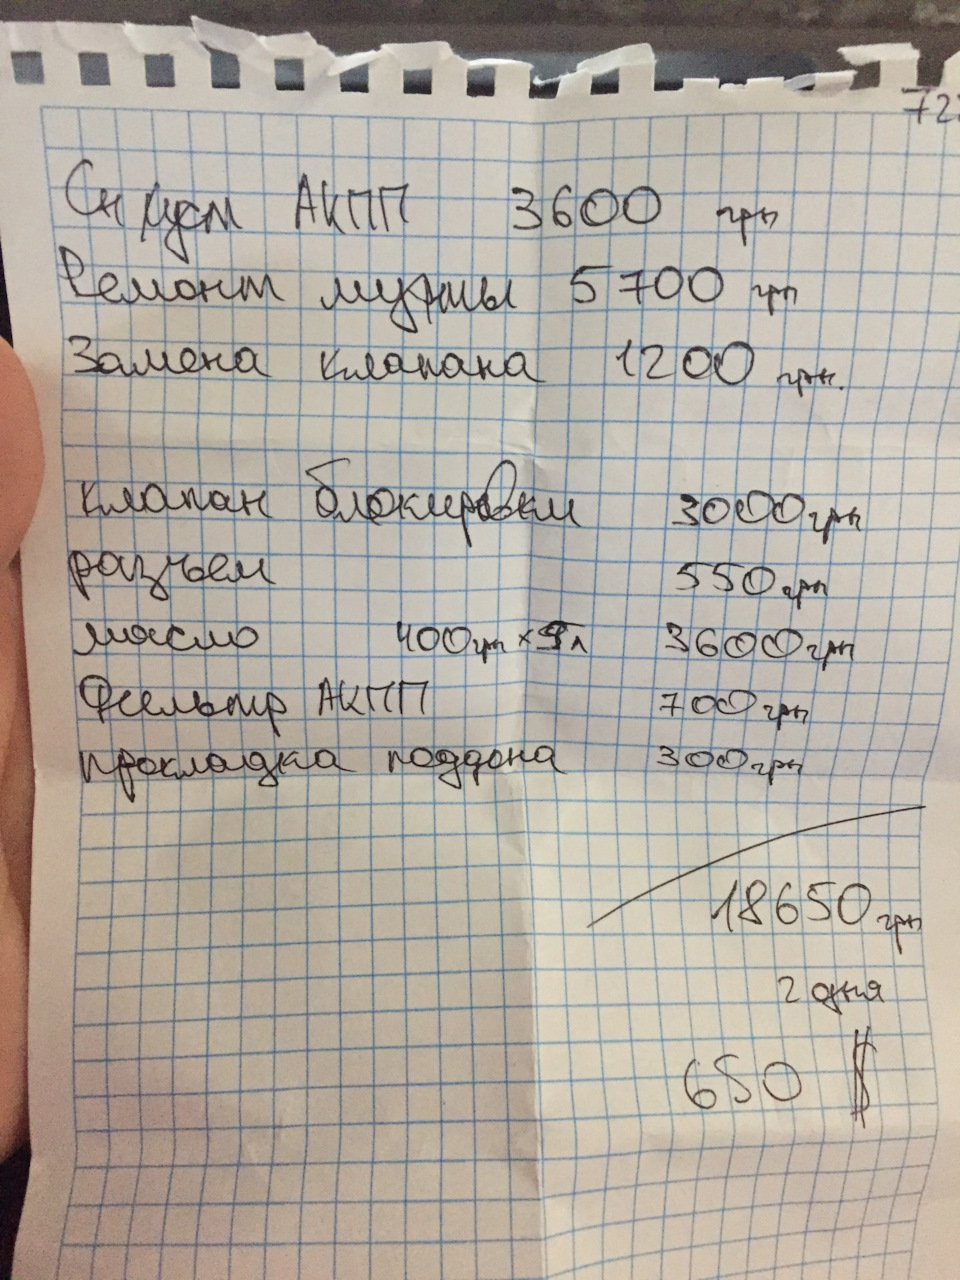 722
Сн / уст АКПП 3600 грн
Ремонт муфты 5700 грн
Замена клапана 1200 грн.
клапан блокировки 3000 грн
разъем 550 грн
масло 400 грн × 9 л 3600 грн
Фильтр АКПП 700 грн
прокладка поддона 300 грн
18650 грн
2 дня
650 $